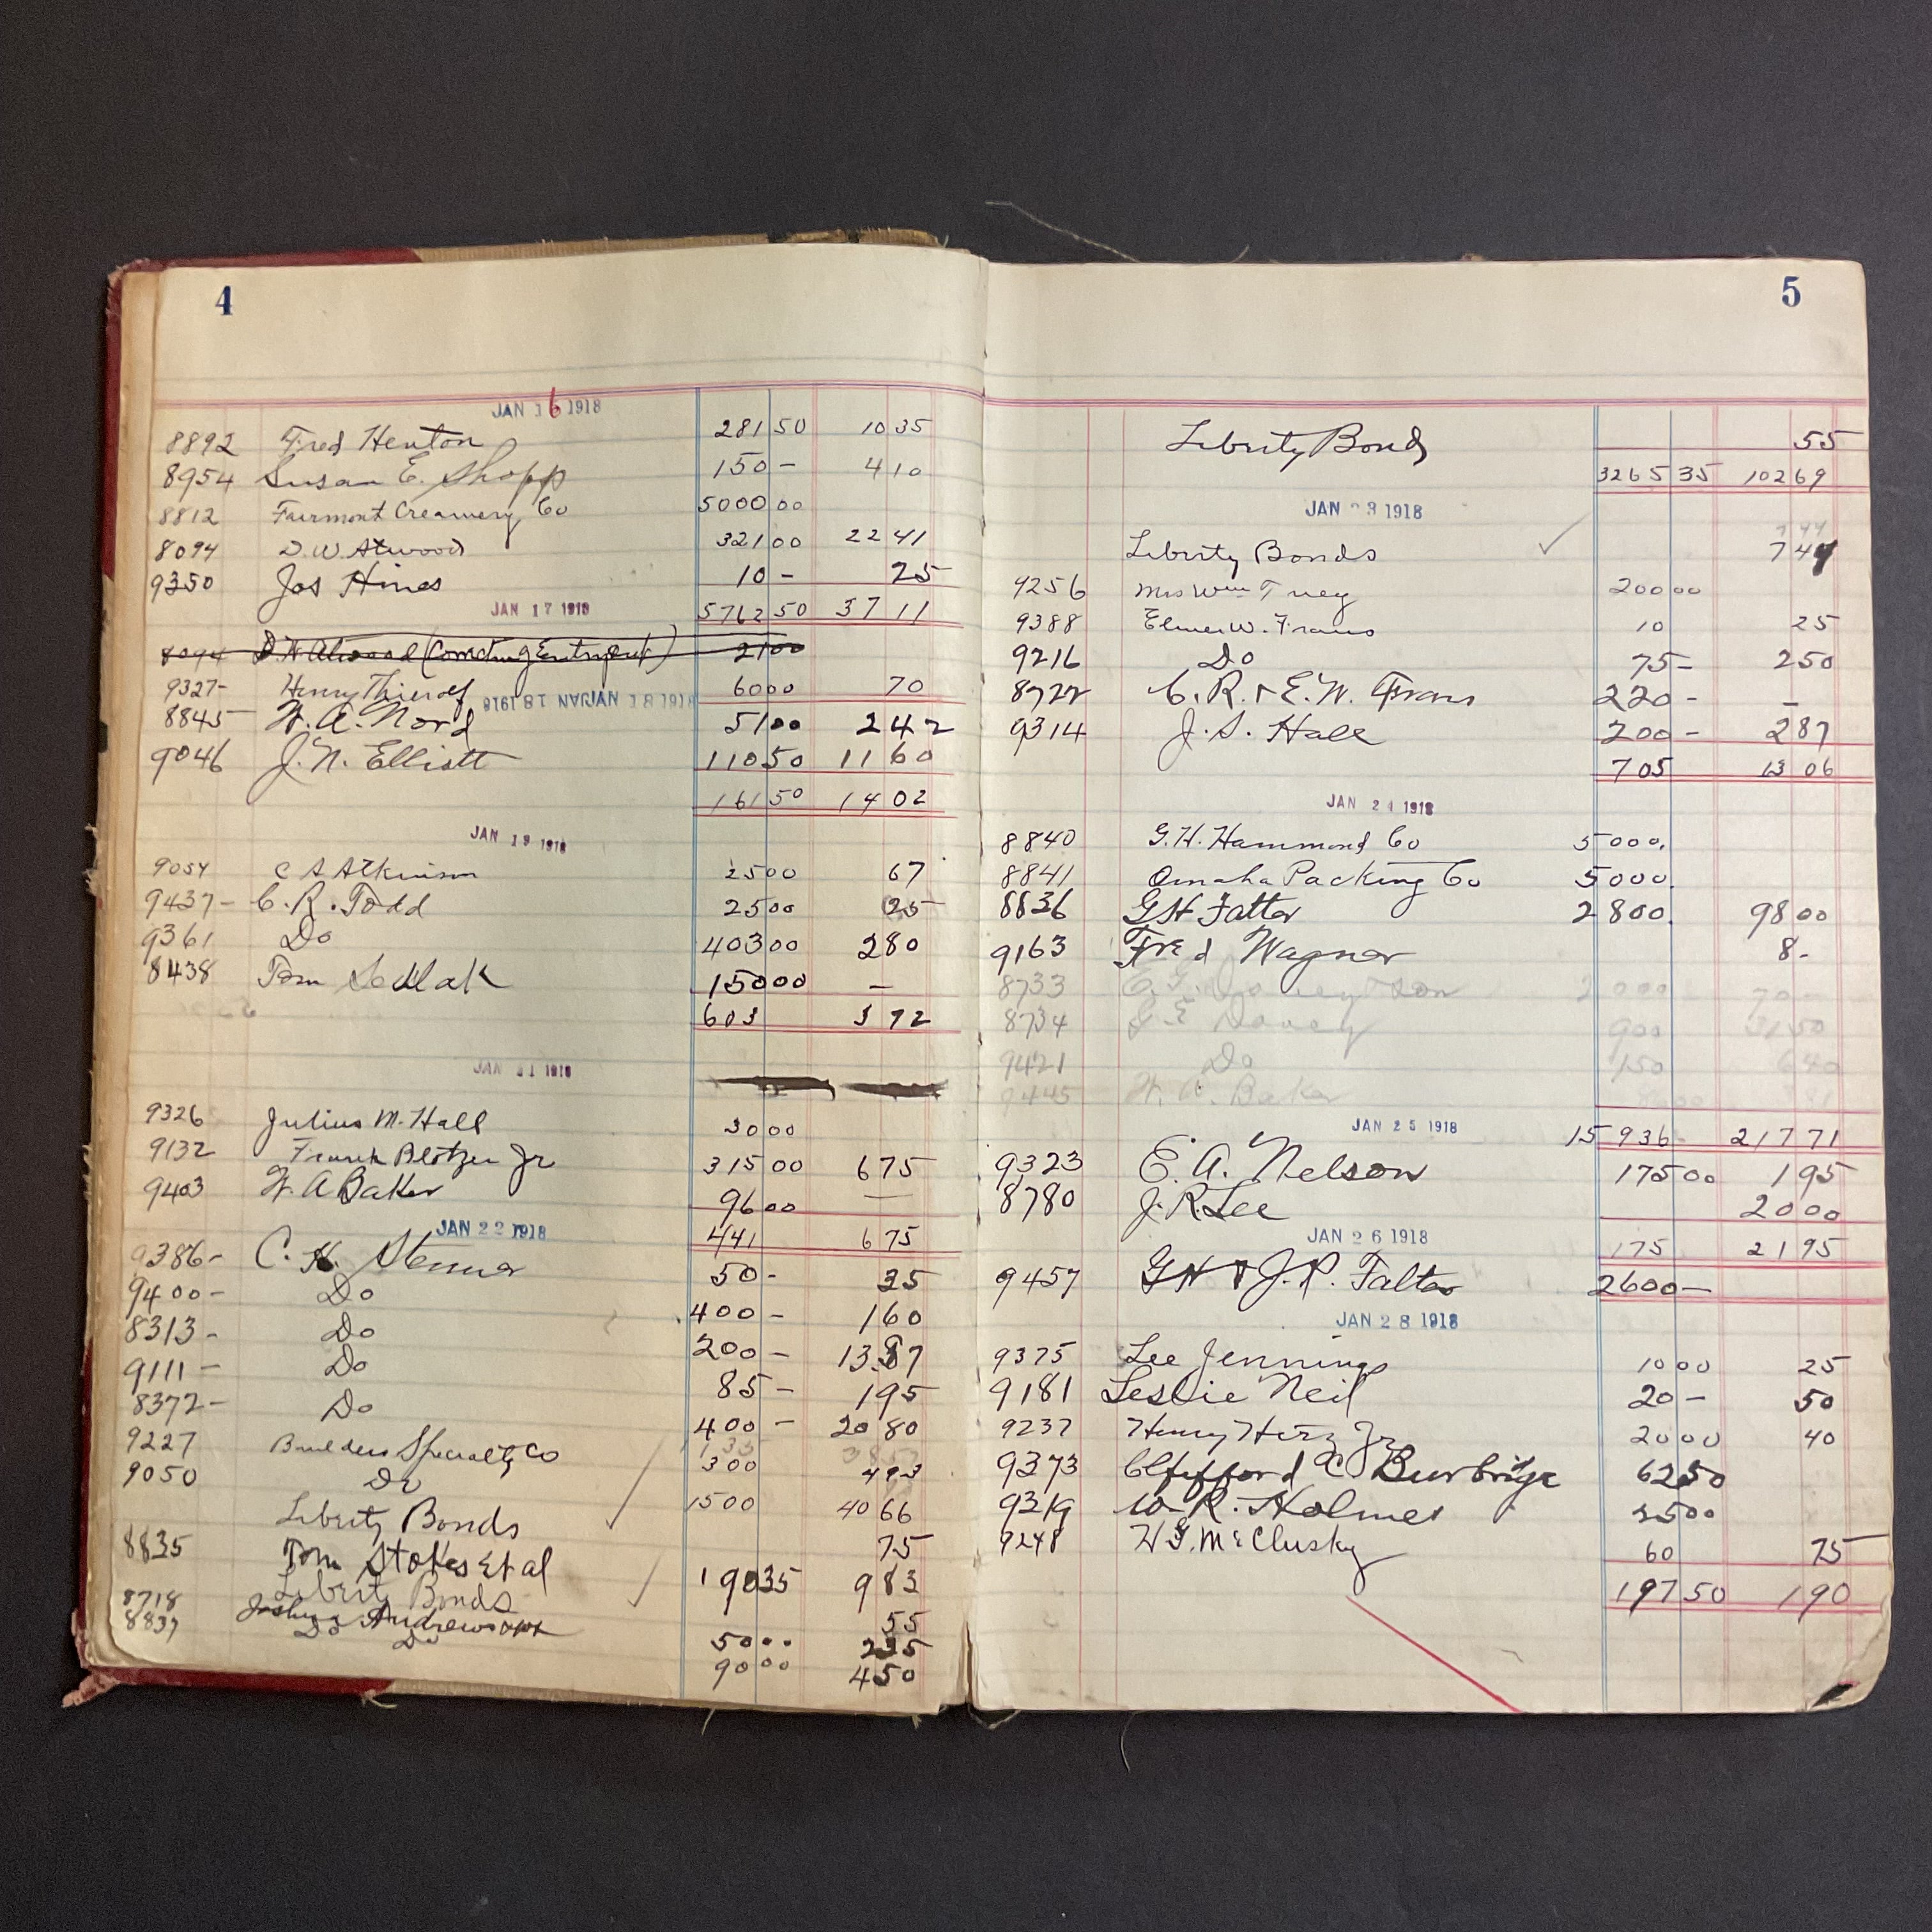 4
JAN 16 1918
8892 Fred Henton 281 50 10 35
8954 Susan E. Shopp 150 - 4 10
8812 Fairmont Creamery Co 5000 00
8094 D. W. Atwood 321 00 22 41
9350 Jos Hines 10 - 25
JAN 17 1918 5762 50 37 11
8094 2100
9327- Henry Thierolf 60 00 70
JAN 18 1918
8845 51 00 2 42
9046 J. N. Elliott 110 50 11 60
161 50 14 02
JAN 19 1918
9054 C S Atkinson 25 00 67
9437- C. R. Todd 25 00 25
9361 Do 403 00 2 80
8438 Tom Sedlak 150 00 -
603 3 72
JAN 21 1918
9326 Julius M. Hall 30 00
9132 Frank Blotzer Jr 315 00 6 75
9403 W. A Baker 96 00 -
JAN 22 1918 441 6 75
9386- C. H. 50 - 35
9400- Do 400 - 1 60
8313- Do 200 - 13 87
9111- Do 85 - 1 95
8372- Do 400 - 20 80
9227 Builders Specialty Co 300 4 93
9050 Do 1500 40 66
Liberty Bonds 75
8835 Tom Stokes Et al 190 35 9 83
Liberty Bonds 55
8718 Joshua Andrews 50 00 2 35
8837 Do Do 90 00 4 50
5
Liberty Bonds 55
3265 35 102 69
JAN 23 1918
Liberty Bonds 7 44
9256 Mrs Wm 200 00
9388 Elmer W. Frans 10 25
9216 Do 75 - 2 50
8722 C. R. & E. W. Frans 220 - -
9314 J. S. Hall 200 - 2 87
705 13 06
JAN 24 1918
8840 G. H. Hammond Co 5000.
8841 Omaha Packing Co 5000.
8836 G H Falter 2800. 98 00
9163 Fred Wagner 8 -
8733 2000 70 -
8734 900 31 50
9421 Do 150 6 40
9445 W. A. Baker
JAN 25 1918 15 936 217 71
9323 E. A. Nelson 175 00 1 95
8780 J. R. Lee 20 00
JAN 26 1918 175 21 95
9457 G H & J. P. Falter 2600 -
JAN 28 1918
9375 Lee Jennings 10 00 25
9181 Leslie Neil 20 - 50
9237 Henry Jr 20 00 40
9373 Clifford C Burbridge 62 50
9319 W. R. Holmes 25 00
9248 McClusky 60 75
197 50 1 90